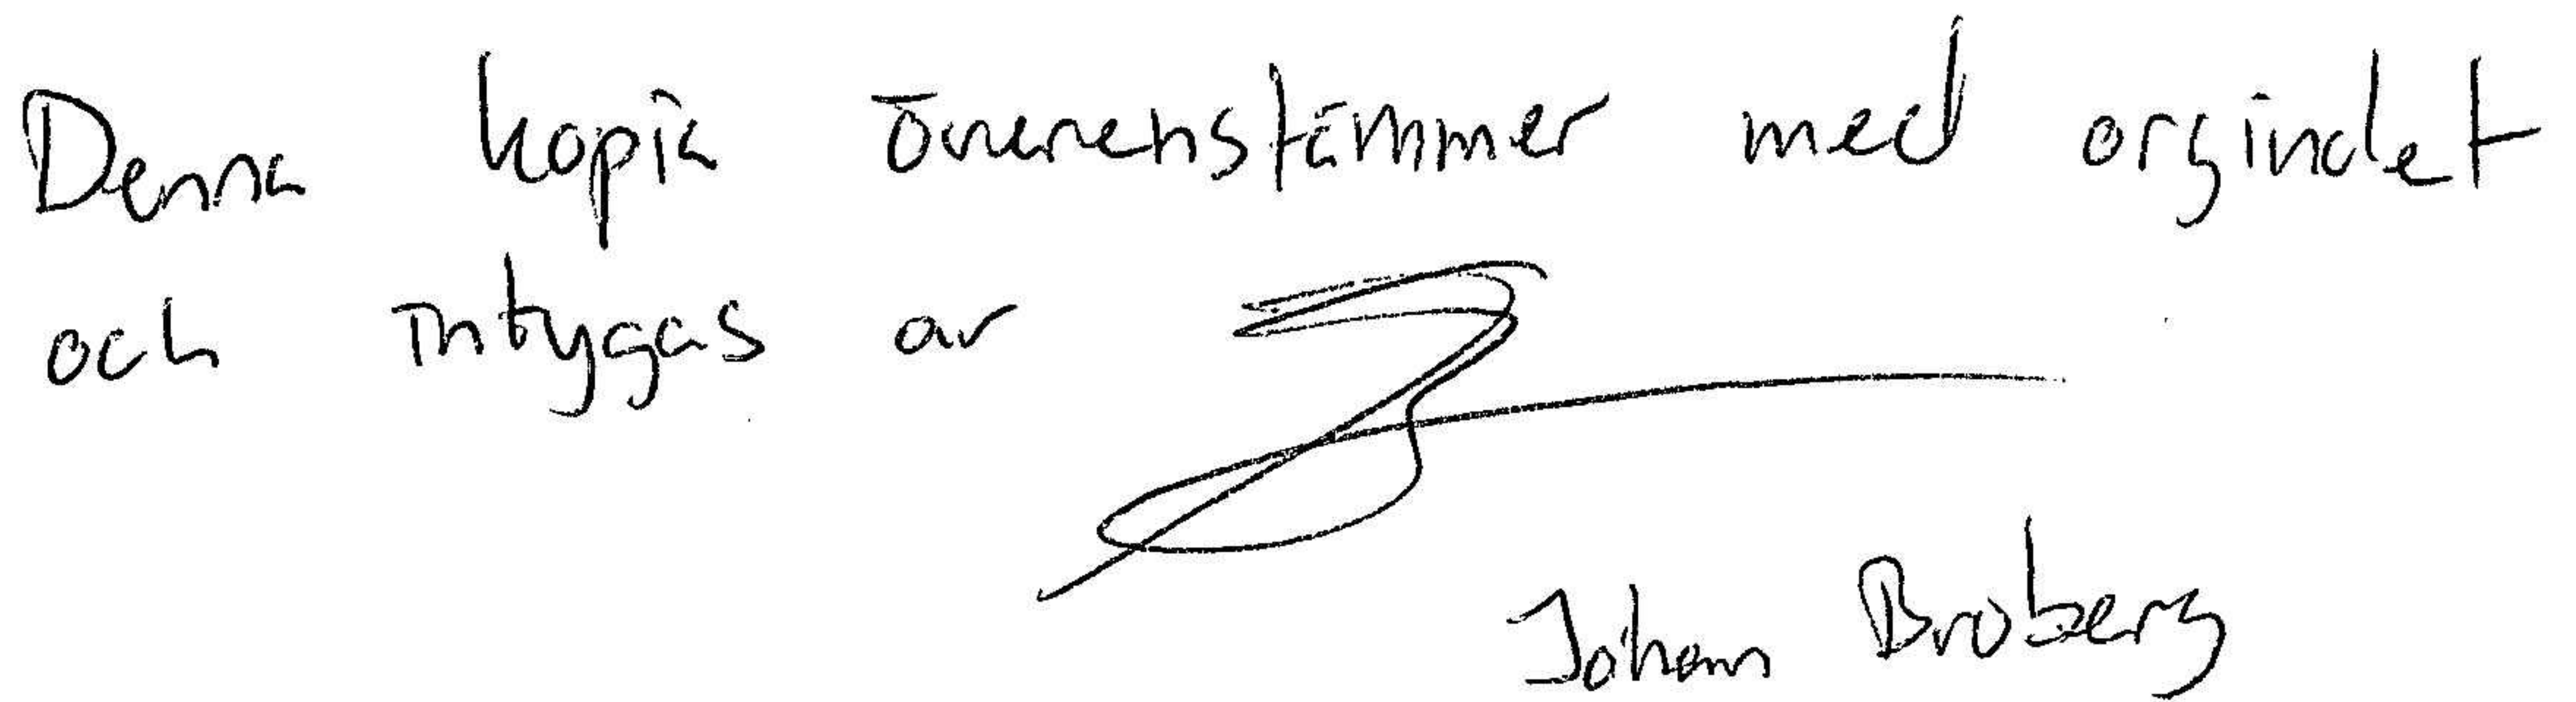 Denna kopia överenstämmer med orginalet
och intygas av
Johan Broberg